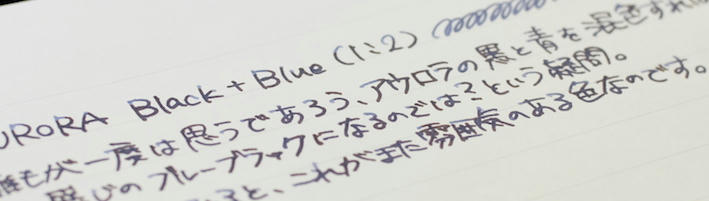 URORA Black + Blue (1:2)
誰もが一度は思うであろう、アウロラの黒と青を混色すれば
感じのブルーブラックになるのでは?という疑問。
ると、これがまた雰囲気のある色なのです。